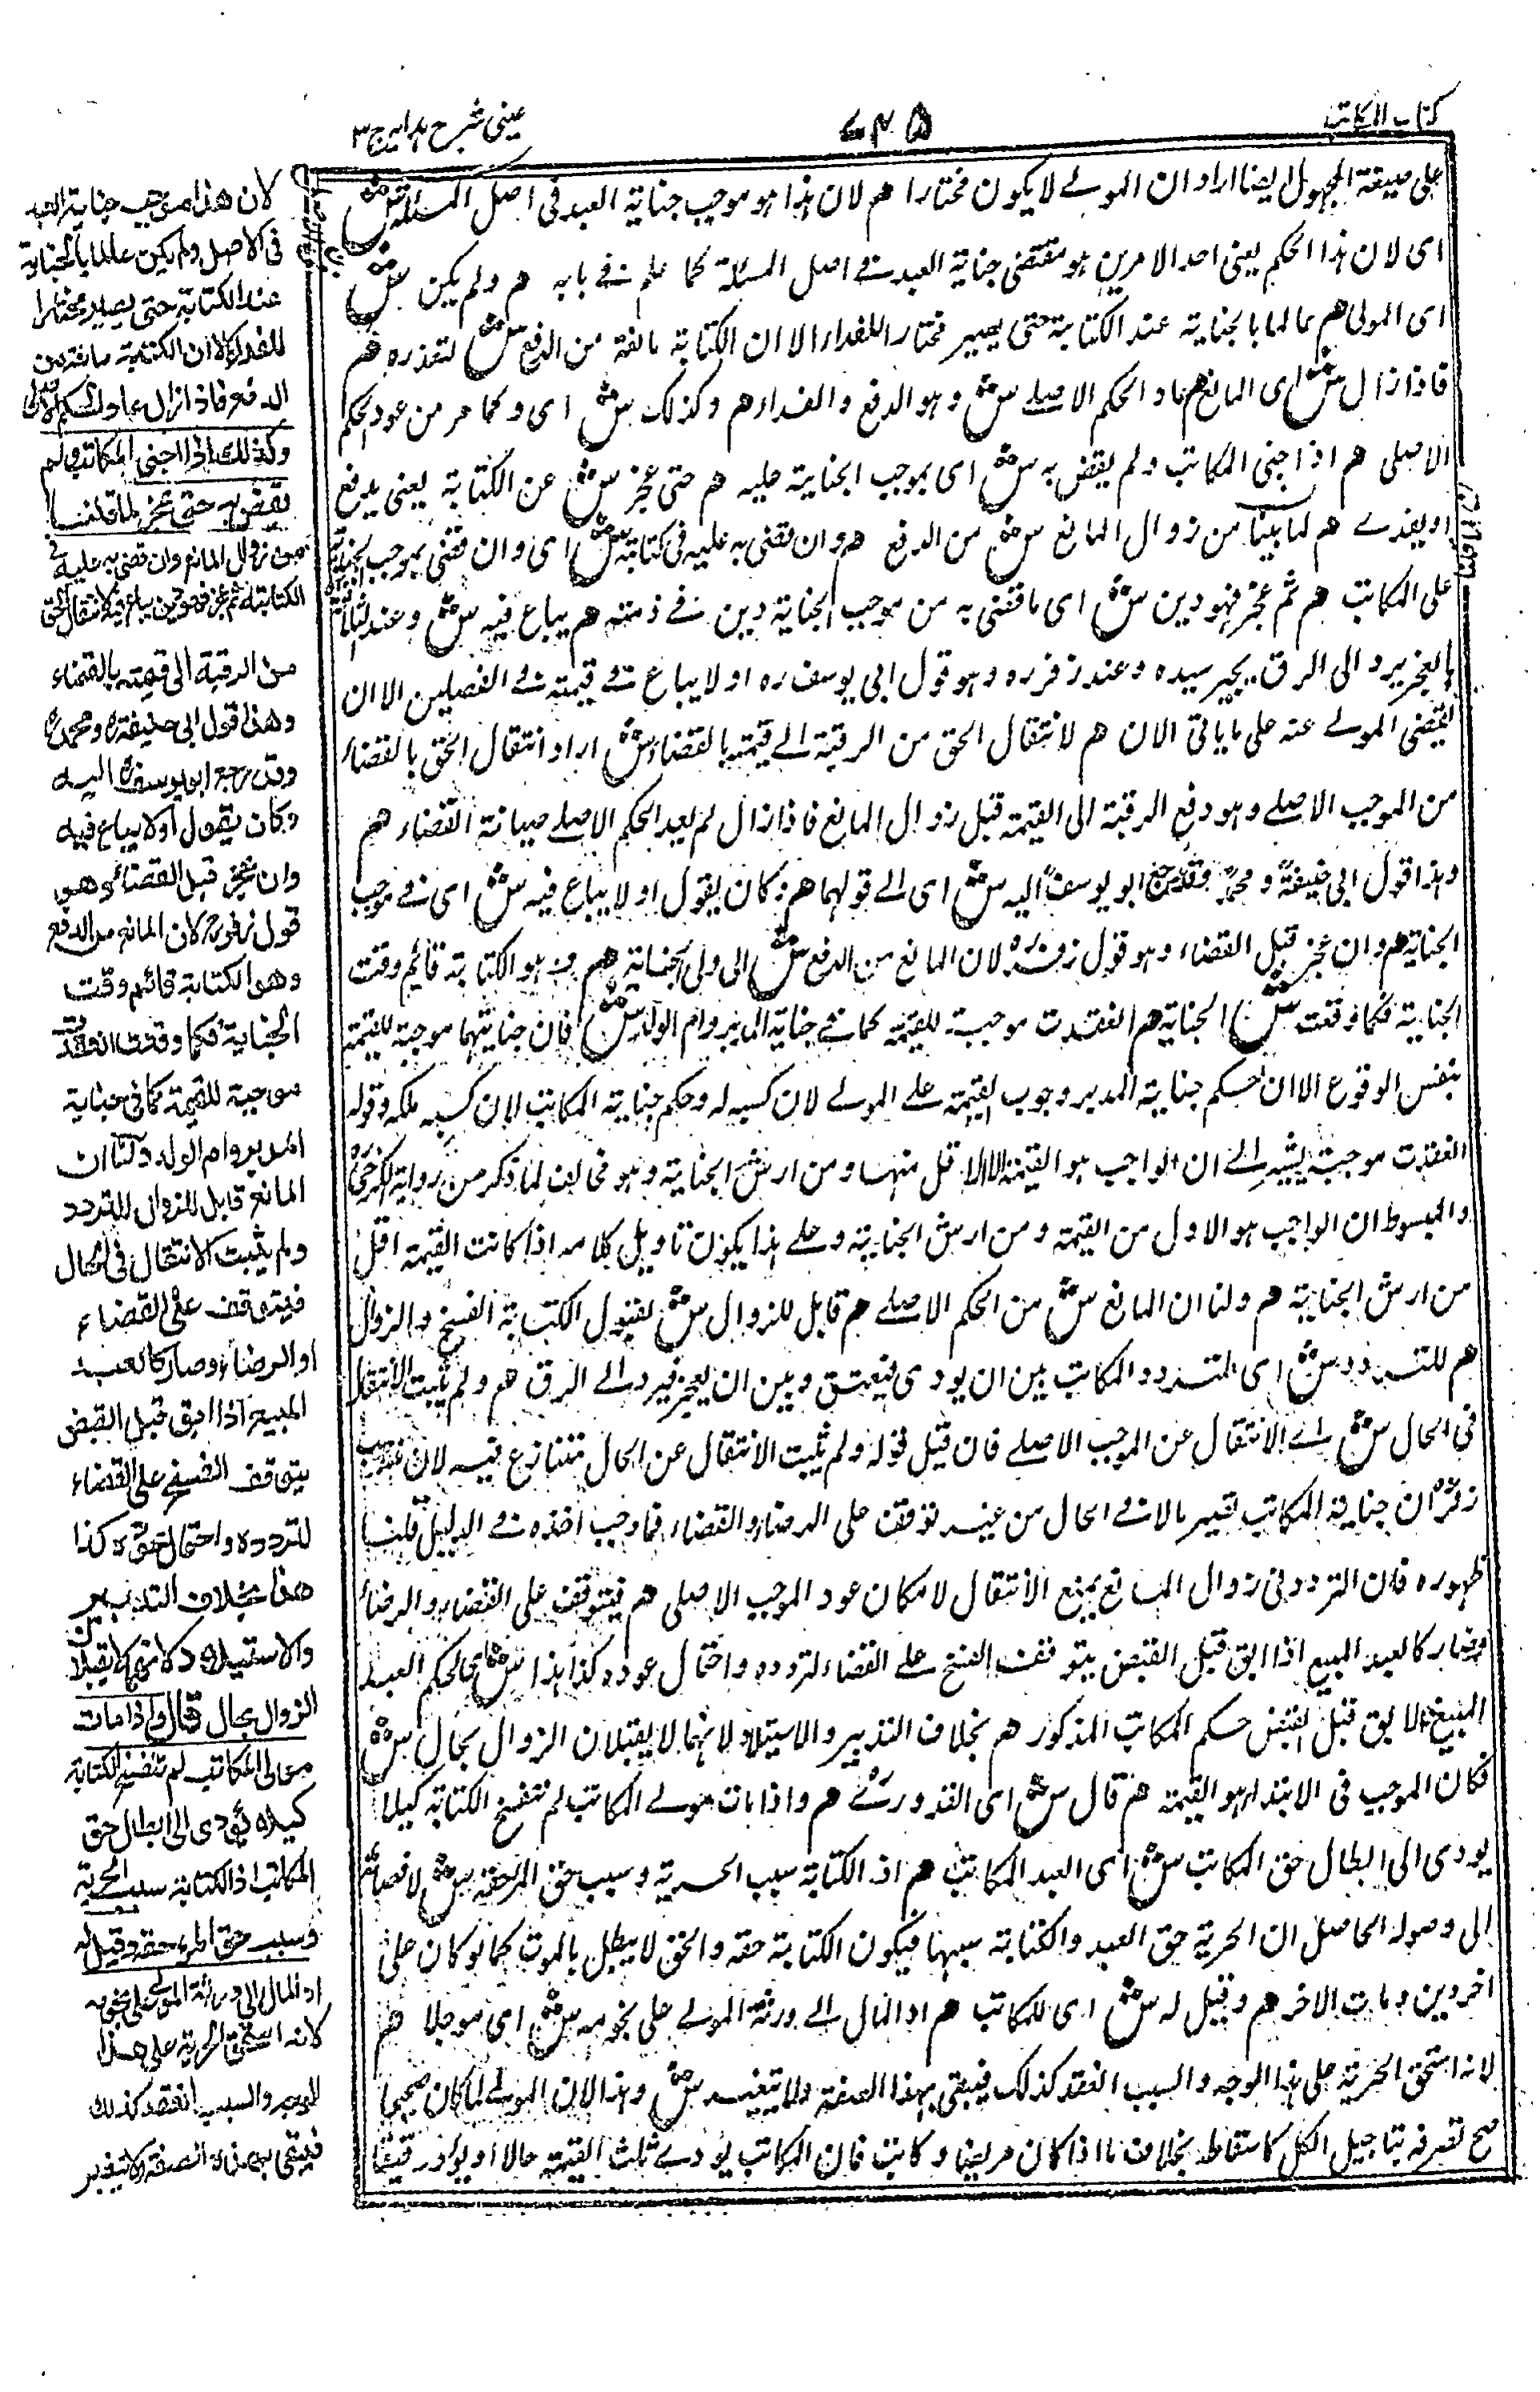 كتاب المكاتب
٧٤٥
عينى شرح هدايه ج ٣
على صيغة المجهول ايضا اراد ان المولے لا يكون مختارا هم لان هذا هو موجب جناية العبد فى اصل المسئلة ش
اى لان هذا الحكم يعنى احد الامرين هو مقتضى جناية العبد فے اصل المسئلة كما علم فے بابه هم ولم يكن ش
اى المولى هم عالما بالجناية عند الكتابة حتى يصير مختارا للفداء الا ان الكتابة مانعة من الدفع ش لتعذره هم
فاذا زال ش اى المانع هم عاد الحكم الاصلے ش وهو الدفع والفداء هم وكذلك ش اى وكما مر من عود الحكم
الاصلى هم اذا جنى المكاتب ولم يقض به ش اى بموجب الجناية عليه هم حتى عجز ش عن الكتابة يعنى يدفع
او يفدے هم لما بينا من زوال المانع ش من الدفع هم وان قضى به عليه فى كتابته ش اى وان قضى بموجب الجناية
على المكاتب هم ثم عجز فهو دين ش اى ما قضى به من موجب الجناية دين فے ذمته هم يباع فيه ش وعند الثلاثة
بالعجز يرد الى الرق يخير سيده وعند زفر ره وهو قول ابى يوسف ره اولا يباع فے قيمته فے الفصلين الا ان
يقضى المولے عنه على ما ياتى الان هم لانتقال الحق من الرقبة الے قيمته بالقضاء ش اراد انتقال الحق بالقضاء
من الموجب الاصلے وهو دفع الرقبة الى القيمة قبل زوال المانع فاذا زال لم يعد الحكم الاصلے صيانة القضاء هم
وهذا قول ابى حنيفة ومحمد وقد رجع ابو يوسف اليه ش اى الے قولهما هم وكان يقول اولا يباع فيه ش اى فے موجب
الجناية هم وان عجز قبل القضاء وهو قول زفر ره لان المانع من الدفع ش الى ولى الجناية هم وهو الكتابة قائم وقت
الجناية فكما وقعت ش الجناية هم انعقدت موجبة للقيمة كما فے جناية المدبر وام الولد ش فان جنايتهما موجبة للقيمة
بنفس الوقوع الا ان حكم جناية المدبر وجوب القيمة على المولے لان كسبه له وحكم جناية المكاتب لان كسبه ملكه وقوله
انعقدت موجبة يشير الے ان الواجب هو القيمة لا الاقل منها ومن ارش الجناية وهو مخالف لما ذكر من رواية الكرخى
والمبسوط ان الواجب هو الاول من القيمة ومن ارش الجناية وعلے هذا يكون تاويل كلامه اذا كانت القيمة اقل
من ارش الجناية هم ولنا ان المانع ش من الحكم الاصلے هم قابل للزوال ش لقبول الكتابة الفسخ والزوال
هم للتردد ش اى لتردد المكاتب بين ان يودى فيعتق وبين ان يعجز فيرد الے الرق هم ولم يثبت الانتقال
فى الحال ش اے الانتقال عن الموجب الاصلے فان قيل قوله ولم يثبت الانتقال عن الحال متنازع فيه لان مذهب
زفر ان جناية المكاتب تصير مالا فے الحال من غير توقف على الرضاء والقضاء فما وجب اخذه فے الدليل قلنا
ظهوره فان التردد فى زوال المانع يمنع الانتقال لامكان عود الموجب الاصلى هم فيتوقف على القضاء والرضاء
وصار كالعبد المبيع اذا ابق قبل القبض يتوقف الفسخ على القضاء لتردده واحتمال عوده كذا هذا ش اى لحكم العبد
المبيع الابق قبل القبض حكم المكاتب المذكور هم بخلاف التدبير والاستيلاد لانهما لا يقبلان الزوال بحال ش
فكان الموجب فى الابتداء هو القيمة هم قال ش اى القدورے هم واذا مات مولے المكاتب لم تنفسخ الكتابة كيلا
يودى الى ابطال حق المكاتب ش اى العبد المكاتب هم اذ الكتابة سبب الحرية وسبب حق المرء حقه ش لافضائه
الى وصوله الحاصل ان الحرية حق العبد والكتابة سببها فيكون الكتابة حقه والحق لا يبطل بالموت كما لو كان على
اخر دين ومات الاخر هم وقيل له ش اى للمكاتب هم اد المال الے ورثة المولے على نجومه ش اى موجلا هم
لانه استحق الحرية على هذا الوجه والسبب انعقد كذلك فيبقى بهذا الصفة ولا يتغير ش وهذا لان المولے لما كان صحيحا
صح تصرفه بتاجيل الكل كاسقاطه بخلاف ما اذا كان مريضا وكاتب فان المكاتب يودے ثلث القيمة حالا او يرد رقيقا
لان هذا موجب جناية العبد
فى الاصل ولم يكن عالما بالجناية
عند الكتابة حتى يصير مختارا
للفداء الا ان الكتابة مانعة من
الدفع فاذا زال عاد الحكم الاصلى
وكذلك اذا جنى المكاتب ولم
يقض به حتى عجز لما قلنا
من زوال المانع وان قضى به عليه فى
الكتابة ثم عجز فهو دين يباع فيه لانتقال الحق
من الرقبة الى قيمته بالقضاء
وهذا قول ابى حنيفة ره ومحمد ره
وقد رجع ابو يوسف ره اليه
وكان يقول اولا يباع فيه
وان عجز قبل القضاء وهو
قول زفر ره لان المانع من الدفع
وهو الكتابة قائم وقت
الجناية فكما وقعت انعقدت
موجبة للقيمة كما فى جناية
المدبر وام الولد ولنا ان
المانع قابل للزوال للتردد
ولم يثبت الانتقال فى الحال
فيتوقف على القضاء
او الرضاء وصار كالعبد
المبيع اذا ابق قبل القبض
يتوقف الفسخ على القضاء
لتردده واحتمال عوده كذا
هذا بخلاف التدبير
والاستيلاد لانهما لا يقبلان
الزوال بحال قال واذا مات
مولى المكاتب لم تنفسخ الكتابة
كيلا يؤدى الى ابطال حق
المكاتب اذ الكتابة سبب الحرية
وسبب حق المرء حقه وقيل له
اد المال الى ورثة المولى على نجومه
لانه استحق الحرية على هذا
الوجه والسبب انعقد كذلك
فيبقى بهذه الصفة ولا يتغير